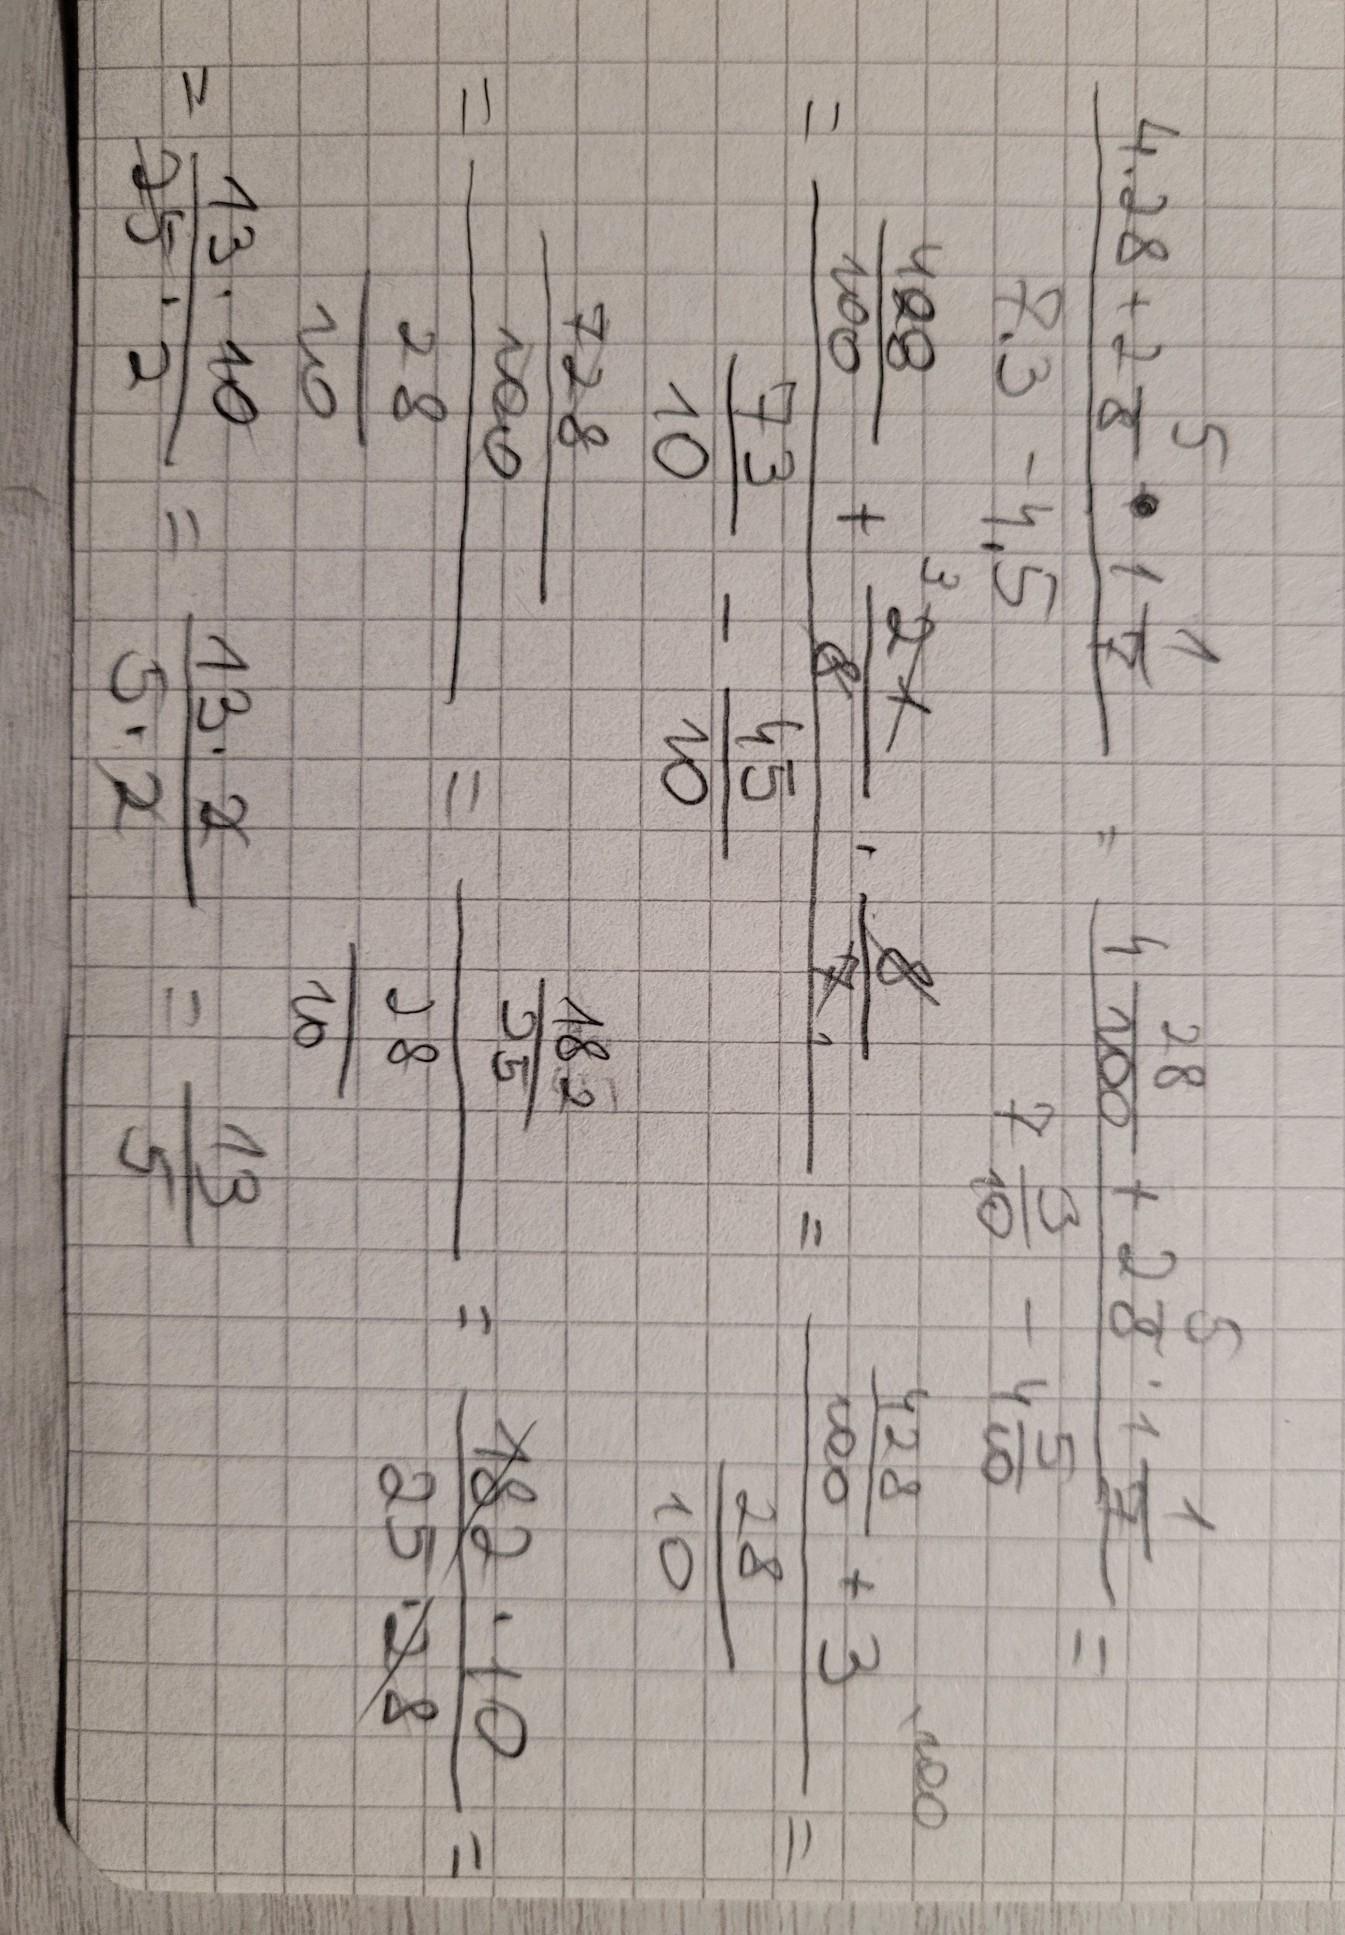 (4.28 + 2 5/8 • 1 1/7) / (7.3 - 4,5) = (4 28/100 + 2 5/8 · 1 1/7) / (7 3/10 - 4 5/10) =
= (428/100 + 21/8 · 8/7) / (73/10 - 45/10) = (428/100 + 3) / (28/10) =
= (728/100) / (28/10) = (182/25) / (28/10) = (182 · 10) / (25 · 28) =
= (13 · 10) / (25 · 2) = (13 · 2) / (5 · 2) = 13/5